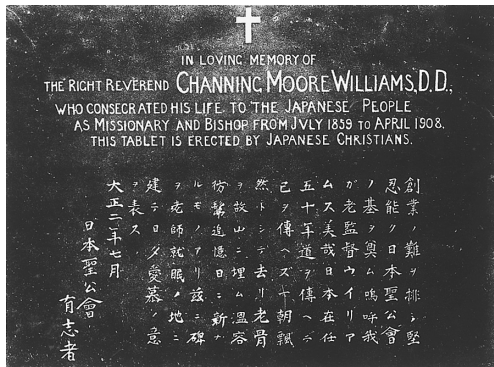 IN LOVING MEMORY OF
THE RIGHT REVEREND CHANNING MOORE WILLIAMS, D.D.,
WHO CONSECRATED HIS LIFE TO THE JAPANESE PEOPLE
AS MISSIONARY AND BISHOP FROM JVLY 1859 TO APRIL 1908.
THIS TABLET IS ERECTED BY JAPANESE CHRISTIANS.
創業ノ難ヲ排シ堅
忍能ク日本聖公會
ノ基ヲ奠ム嗚呼我
ガ老監督ウイリア
ムス美哉日本在任
五十年道ヲ傳ヘテ
己ヲ傳ヘズ一朝飄
然トシテ去リ老骨
ヲ故山ニ埋ム溫容
彷髴追憶日ニ新ナ
ルモノアリ茲ニ碑
ヲ老師就眠ノ地ニ
建テ愛慕ノ意
ヲ表ス
大正二年七月
日本聖公會
有志者